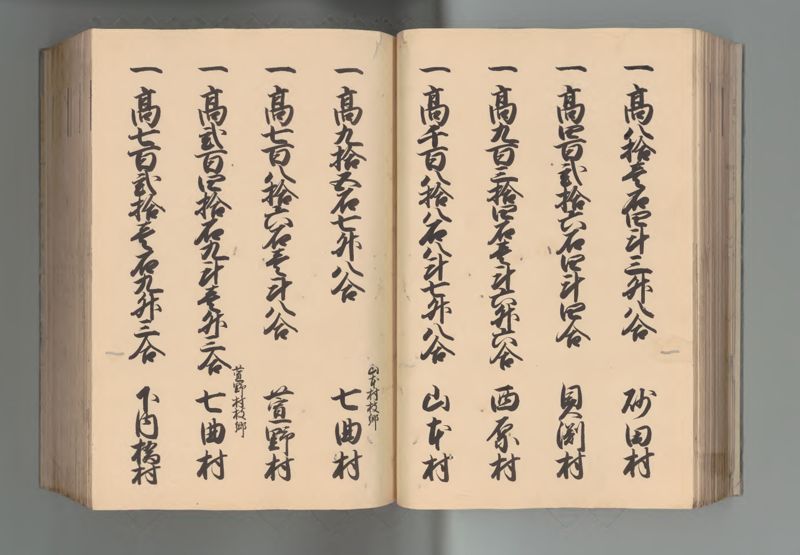 一 高八拾壱石四斗三升八合 砂田村
一 高四百弐拾六石四斗四合 貝渕村
一 高九百三拾四石壱斗六升六合 西原村
一 高千百八拾八石八斗七升八合 山本村
山本村枝郷
一 高九拾五石七升八合 七曲村
一 高七百八拾六石壱斗八合 萱野村
萱野村枝郷
一 高弐百四拾石九斗壱升二合 七曲村
一 高七百弐拾壱石九升三合 下内橋村